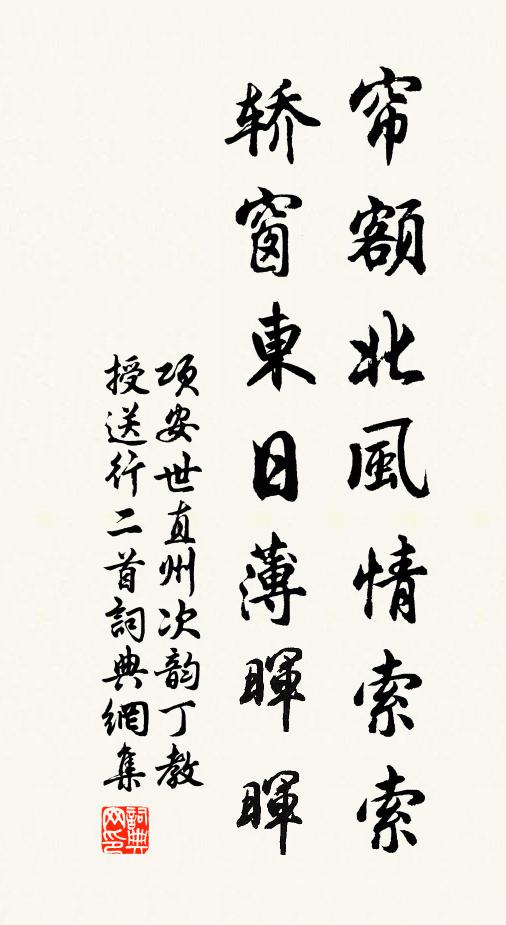 帘額北風情索索
轿窗東日薄暉暉
项安世直州次韵丁教
授送行二首詞典網集
詞典
网印